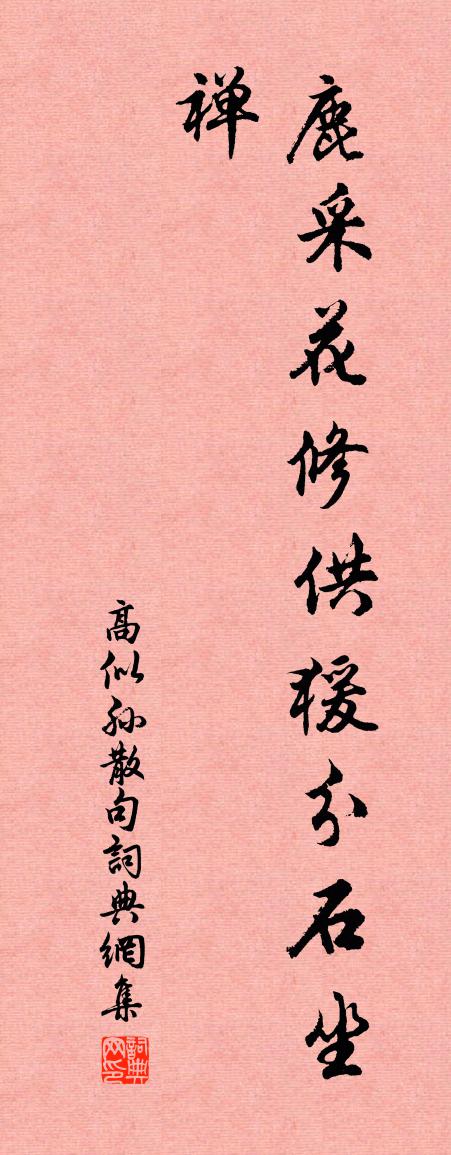 鹿采花修供猨分石坐
禅
高似孙散句詞典網集
詞典
网印